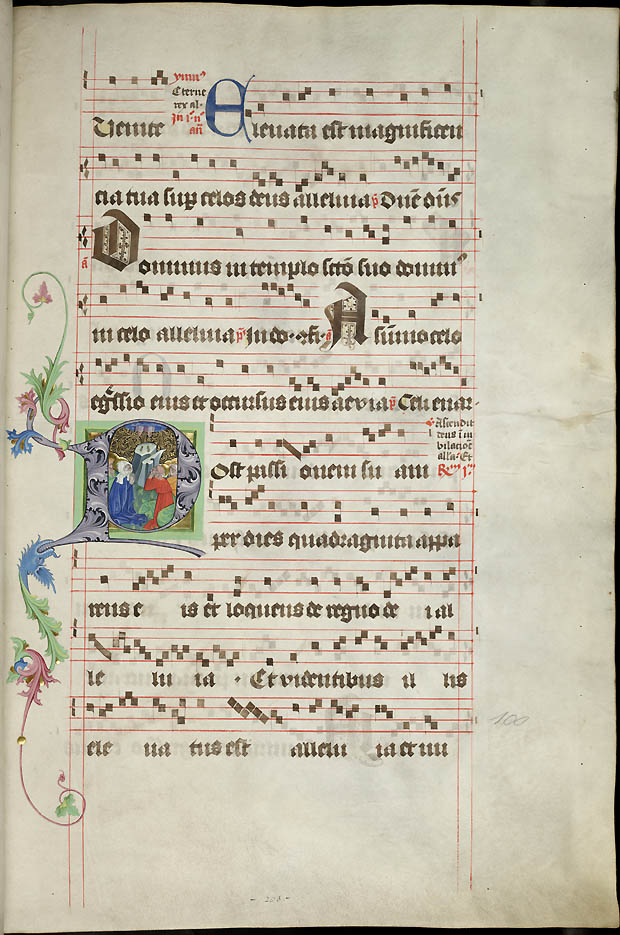 ymnus
Eterne
rex al-
in i. n
an
Venite Eleuata est magnificen
cia tua sup celos deus alleluia p Dne dns
a Dominus in templo scto suo domin9
in celo alleluia p In do. ofi. a A summo celo
egressio eius et occursus eius aeuia p Celi enar
Ascendit
deus i iu
bilacioe
alla. Et
Post passi onem su am
per dies quadraginta appa
rens e is et loquens de regno de i al
le lu ia . Et videntibus il lis
100
ele ua tus est allelu ia et nu
- 208 -